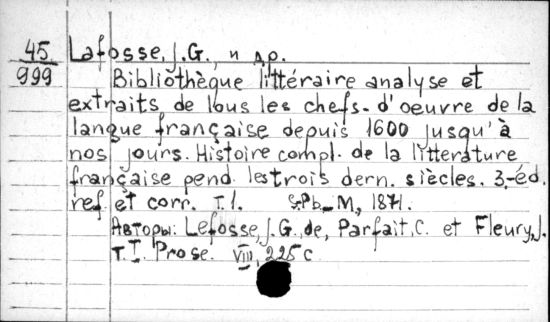 45 Lafosse, J.G., и др.
999 Bibliothèque littéraire analyse et
extraits de tous les chefs-d'oeuvre de la
langue française depuis 1600 jusqu'à
nos jours. Histoire compl. de la litterature
française pend. les trois dern. siècles. 3-éd.
ref et corr. T.1. S.Pb_M, 1871.
Авторы: Lefosse, J.G., de, Parfait, C. et Fleury, J.
T.I. Prose. VIII, 225 c